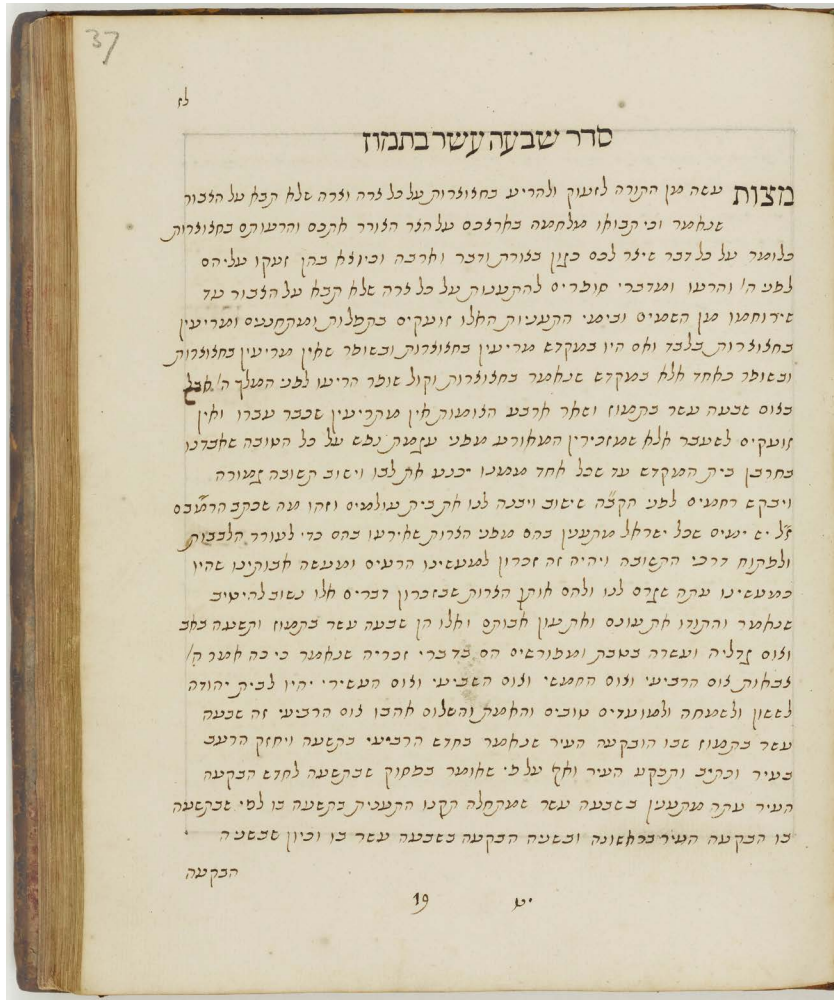 37
לז
סדר שבעה עשר בתמוז
מצות עשה מן התורה לזעוק ולהריע בחצוצרות על כל צרה וצרה שלא תבא על הצבור
שנאמר וכי תבואו מלחמה בארצכם על הצר הצורר אתכם והרעותם בחצוצרות
כלומר על כל דבר שיצר לכם כגון בצורת ודבר וארבה וכיוצא בהן זעקו עליהם
לפני ה' והרעו ומדברי סופרים להתענות על כל צרה שלא תבא על הצבור עד
שירוחמו מן השמים ובימי התעניות האלו זועקים בתפלות ומתחננים ומריעין
בחצוצרות בלבד ואם היו במקדש מריעין בחצוצרות ובשופר שאין מריעין בחצוצרות
ובשופר כאחד אלא במקדש שנאמר בחצוצרות וקול שופר הריעו לפני המלך ה' אבל
בצום שבעה עשר בתמוז ושאר ארבע הצומות אין מתריעין שכבר עברו ואין
זועקים לשעבר אלא שמזכירין המאורע מפני עגמת נפש על כל הטובה שאבדנו
בחרבן בית המקדש עד שכל אחד ממנו יכנע את לבו וישוב תשובה גמורה
ויבקש רחמים לפני הקב"ה שישוב ויבנה לנו את בית עולמים וזהו מה שכתב הרמב"ם
ז"ל יש ימים שכל ישראל מתענין בהם מפני הצרות שאירעו בהם כדי לעורר הלבבות
ולפתוח דרכי התשובה ויהיה זה זכרון למעשינו הרעים ומעשה אבותינו שהיו
כמעשינו עתה שגרם לנו ולהם אותן הצרות שבזכרון דברים אלו נשוב להיטיב
שנאמר והתודו את עונם ואת עון אבותם ואלו הן שבעה עשר בתמוז ותשעה באב
וצום גדליה ועשרה בטבת ומפורשים הם בדברי זכריה שנאמר כי כה אמר ה'
צבאות צום הרביעי וצום החמשי וצום השביעי וצום העשירי יהיו לבית יהודה
לששון ולשמחה ולמועדים טובים והאמת והשלום אהבו צום הרביעי זה שבעה
עשר בתמוז שבו הובקעה העיר שנאמר בחדש הרביעי בתשעה ויחזק הרעב
בעיר וכתיב ותבקע העיר ואף על פי שאומר בפסוק שבתשעה לחדש הבקעה
העיר עתה מתענין בשבעה עשר שמתחלה תקנו התענית בתשעה בו לפי שבתשעה
בו הבקעה העיר בראשונה ובשניה הבקעה בשבעה עשר בו וכיון שבשניה
הבקעה
יט 19